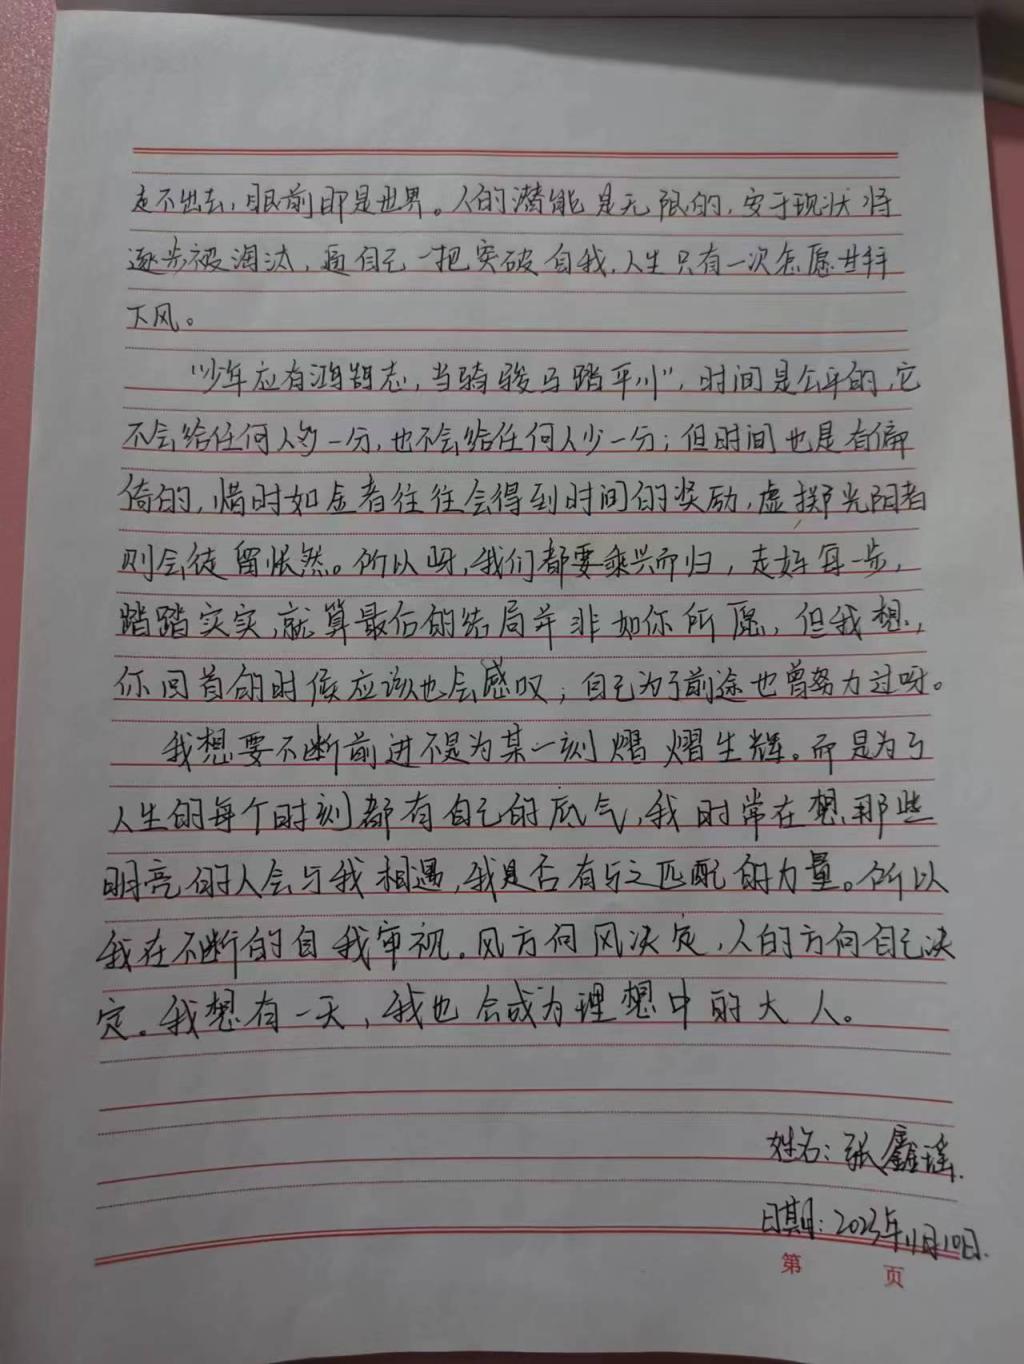 走不出去，眼前即是世界。人的潜能是无限的，安于现状将
逐步被淘汰，逼自己一把突破自我，人生只有一次怎愿甘拜
下风。
“少年应有鸿鹄志，当骑骏马踏平川”，时间是公平的，它
不会给任何人多一分，也不会给任何人少一分；但时间也是有偏
倚的，惜时如金者往往会得到时间的奖励，虚掷光阴者
则会徒留怅然。所以呀，我们都要乘兴而归，走好每一步，
踏踏实实，就算最后的结局并非如你所愿，但我想，
你回首的时候应该也会感叹；自己为了前途也曾努力过呀。
我想要不断前进不是为某一刻熠熠生辉。而是为了
人生的每个时刻都有自己的底气，我时常在想那些
明亮的人会与我相遇，我是否有与之匹配的力量。所以
我在不断的自我审视。风方向风决定，人的方向自己决
定。我想有一天，我也会成为理想中的大人。
姓名：张鑫瑶.
日期：2023年11月10日.
第 页